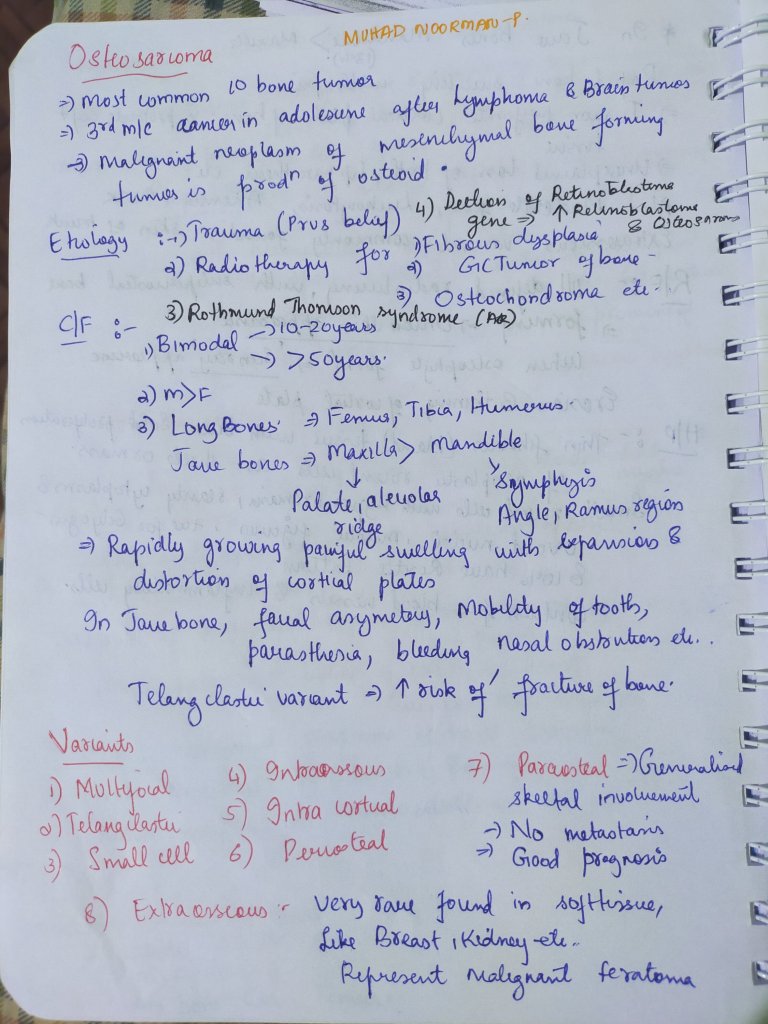 MUHAD NOORMAN-P.
Osteosarcoma
=) Most common 1° bone tumor
=) 3rd m/c cancer in adolescene after lymphoma & Brain tumors
=) Malignant neoplasm of mesenchymal bone forming
tumor is prodn of osteoid.
Etiology :- 1) Trauma (Prvs belief)
2) Radiotherapy for 1) Fibrous dysplasia
2) GC Tumor of bone -
3) Osteochondroma etc.
3) Rothmund Thomson syndrome (AR)
4) Deltion of Retinoblastoma
gene => ↑ Retinoblastoma
& Osteosarcoma
C/F :-
1) Bimodal → 10-20years
→ >50years.
2) M>F
3) Long Bones => Femur, Tibia, Humerus
Jaw bones => Maxilla > Mandible
Palate, alveolar
ridge
Symphysis
Angle, Ramus region
=> Rapidly growing painful swelling with expansion &
distortion of cortial plates
In Jaw bone, facial asymetry, Mobility of tooth,
parasthesia, bleeding nasal obstrution etc..
Telangiectatic variant => ↑ risk of fracture of bone.
Variants
1) Multifocal
2) Telangiectatic
3) Small cell
4) Intraossous
5) Intra cortical
6) Periosteal
7) Paraosteal => Generalised
skeltal involvement
→ No metastasis
=> Good prognosis
8) Extraosseous :- Very rare found in soft tissue,
like Breast, Kidney etc..
Represent Malignant teratoma